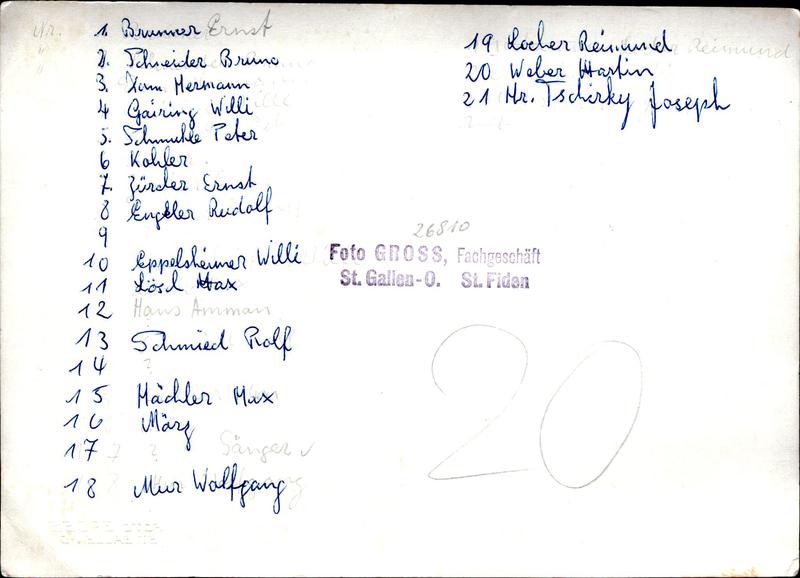 Nr. 1. Brunner Ernst
" 2. Schneider Bruno
3. Hermann
4 Gairing Willi
5. Schmuhle Peter
6 Kohler
7. Zürcher Ernst
8 Engeler Rudolf
9
10 Eppelsheimer Willi
11 Lösel Max
12 Hans Amman
13 Schmied Rolf
14 ?
15 Mächler Max
16 März
17 ? Sänger
18 Mur Wolfgang
19 Locher Reimund
20 Weber Martin
21 Hr. Tschirky Joseph
26810
Foto GROSS, Fachgeschäft
St. Gallen-O. St. Fiden
20